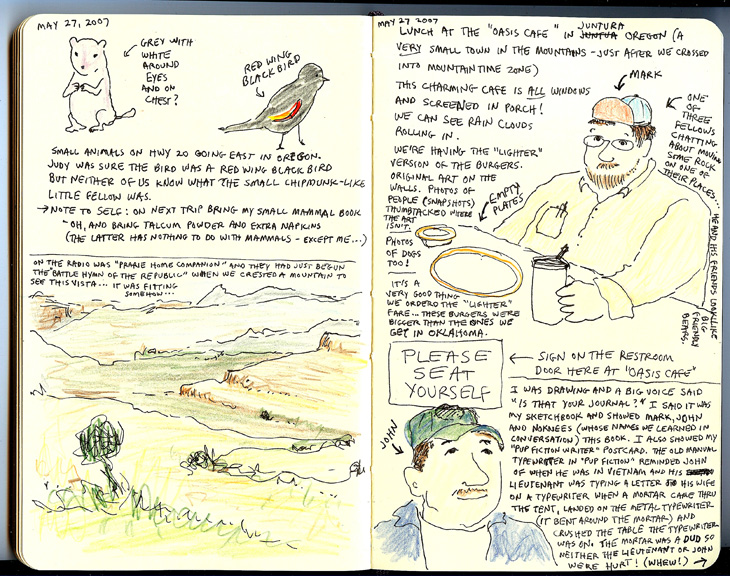 MAY 27, 2007
GREY WITH
WHITE
AROUND
EYES
AND ON
CHEST?
RED WING
BLACKBIRD
SMALL ANIMALS ON HWY 20 GOING EAST IN OREGON.
JUDY WAS SURE THE BIRD WAS A RED WING BLACKBIRD
BUT NEITHER OF US KNOW WHAT THE SMALL CHIPMUNK-LIKE
LITTLE FELLOW WAS.
→ NOTE TO SELF: ON NEXT TRIP BRING MY SMALL MAMMAL BOOK
- OH, AND BRING TALCUM POWDER AND EXTRA NAPKINS
(THE LATTER HAS NOTHING TO DO WITH MAMMALS - EXCEPT ME...)
ON THE RADIO WAS "PRAIRIE HOME COMPANION" AND THEY HAD JUST BEGUN
THE "BATTLE HYMN OF THE REPUBLIC" WHEN WE CRESTED A MOUNTAIN TO
SEE THIS VISTA... IT WAS FITTING
SOMEHOW...
MAY 27 2007
LUNCH AT THE "OASIS CAFE" IN JUNTURA OREGON (A
VERY SMALL TOWN IN THE MOUNTAINS - JUST AFTER WE CROSSED
INTO MOUNTAIN TIME ZONE)
THIS CHARMING CAFE IS ALL WINDOWS
AND SCREENED IN PORCH!
WE CAN SEE RAIN CLOUDS
ROLLING IN.
WE'RE HAVING THE "LIGHTER"
VERSION OF THE BURGERS.
ORIGINAL ART ON THE
WALLS. PHOTOS OF
PEOPLE (SNAPSHOTS)
THUMBTACKED WHERE
THE ART
ISN'T.
PHOTOS
OF DOGS
TOO!
IT'S A
VERY GOOD THING
WE ORDERD THE "LIGHTER"
FARE... THESE BURGERS WERE
BIGGER THAN THE ONES WE
GET IN OKLAHOMA.
EMPTY
PLATES
MARK
ONE
OF
THREE
FELLOWS
CHATTING
ABOUT MOVING
SOME ROCK
ON ONE OF
THEIR PLACES...
HE AND HIS FRIENDS LOOK LIKE
BIG
FRIENDLY
BEARS.
PLEASE
SEAT
YOURSELF
← SIGN ON THE RESTROOM
DOOR HERE AT "OASIS CAFE"
JOHN
I WAS DRAWING AND A BIG VOICE SAID
"IS THAT YOUR JOURNAL?" I SAID IT WAS
MY SKETCHBOOK AND SHOWED MARK, JOHN
AND NOKNEES (WHOSE NAMES WE LEARNED IN
CONVERSATION) THIS BOOK. I ALSO SHOWED MY
"PUP FICTION WRITER" POSTCARD. THE OLD MANUAL
TYPEWRITER IN "PUP FICTION" REMINDED JOHN
OF WHEN HE WAS IN VIETNAM AND HIS
LIEUTENANT WAS TYPING A LETTER TO HIS WIFE
ON A TYPEWRITER WHEN A MORTAR CAME THRU
THE TENT, LANDED ON THE METAL TYPEWRITER
(IT BENT AROUND THE MORTAR) AND
CRUSHED THE TABLE THE TYPEWRITER
WAS ON. THE MORTAR WAS A DUD SO
NEITHER THE LIEUTENANT OR JOHN
WERE HURT! (WHEW!) →